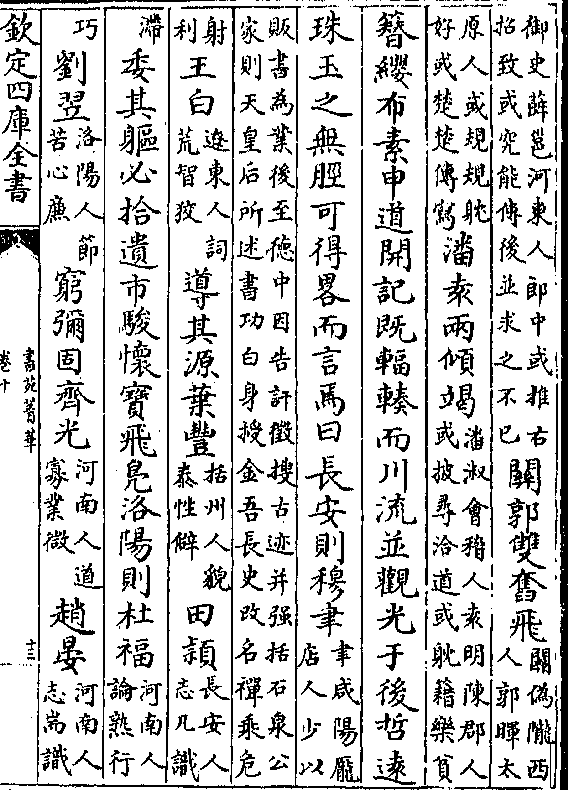 御史薛邕河東人郎中或推右
招致或究能傳後並求之不已
關郭雙奮飛
關僞隴西
人郭暉太
原人或規規躭
好或楚楚傳窮
潘袁兩傾竭
潘淑會稽人袁明陳郡人
或披尋洽道或躭籍樂貧
簪纓布素申道開記既輻輳而川流並觀光于後哲遠
珠玉之無脛可得畧而言焉曰長安則穆聿
聿咸陽龎
店人少以
販書為業後至德中因告訐徵搜古迹并强括石泉公
家則天皇后所述書功白身授金吾長史改名禪乘危
射
利
王白
遼東人詞
荒智狡
導其源葉豐
括州人貌
泰性僻
田頴
長安人
志凡識
滯
委其軀必拾遺市駿懷寶飛鳬洛陽則杜福
河南人
論熟行
巧
劉翌
洛陽人節
苦心廉
窮彌固齊光
河南人道
寡業微
趙晏
河南人
志尚識
欽定四庫全書
書苑菁華
卷十
十三